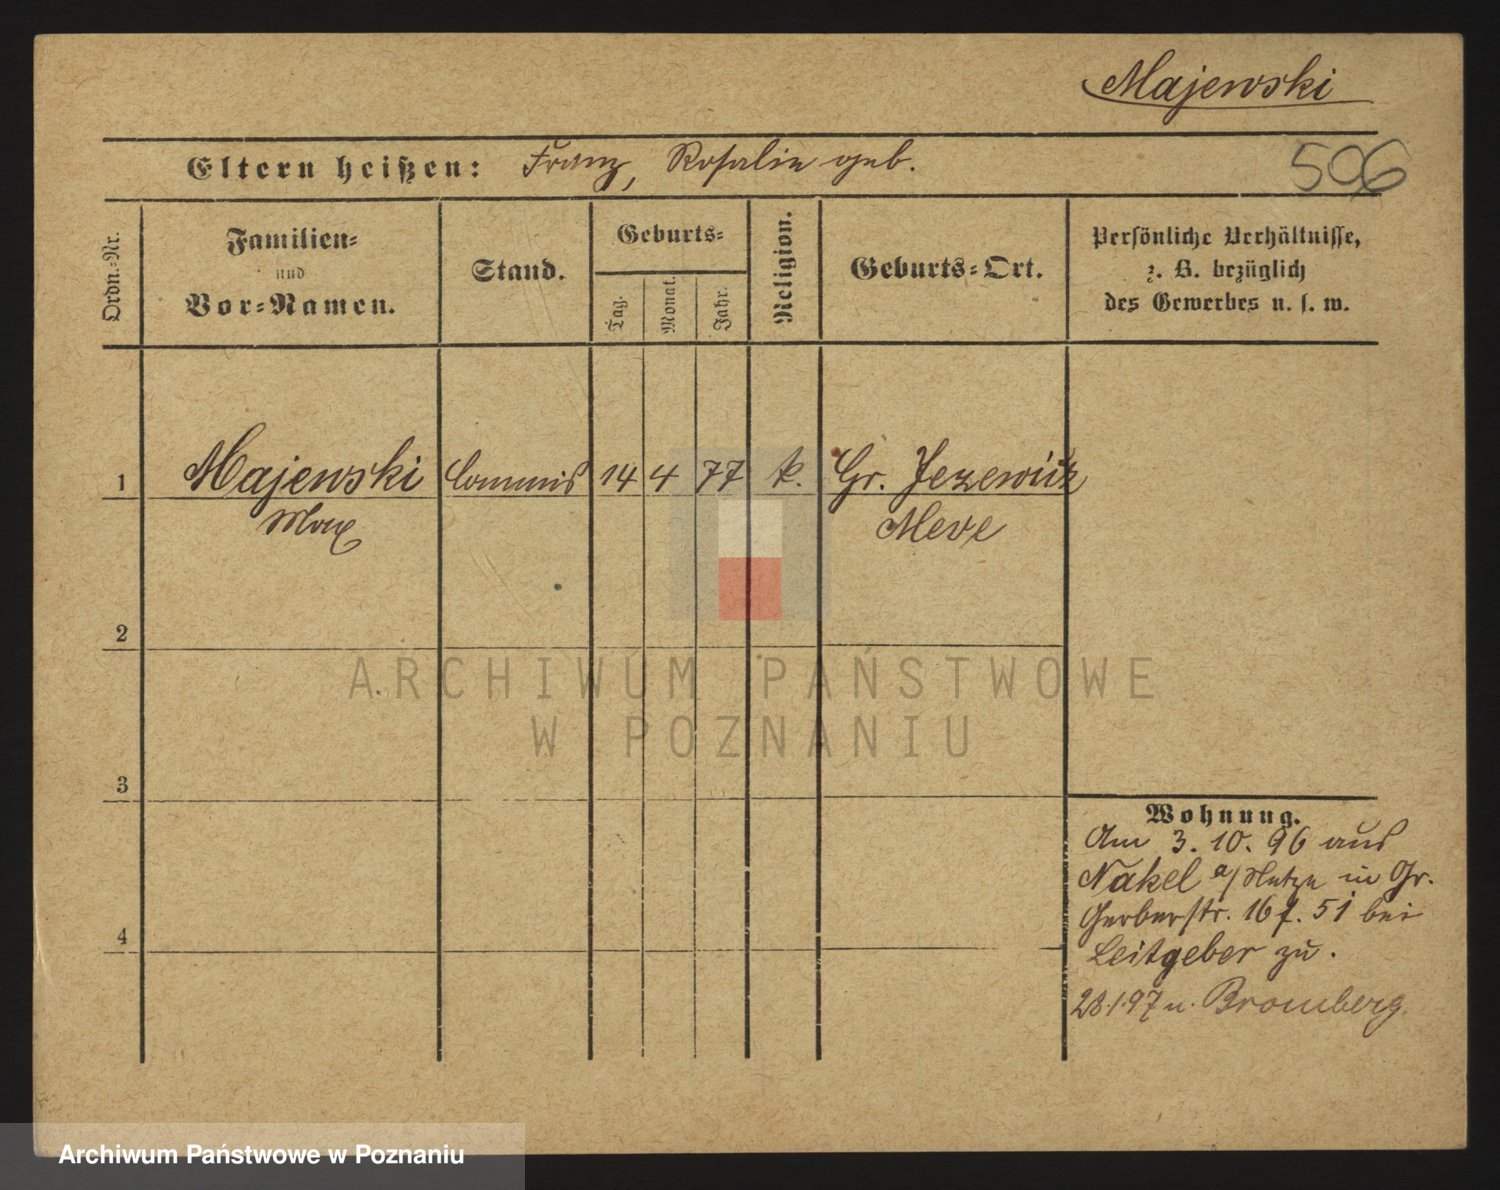 Majewski
506
Eltern heißen: Franz, Rosalie geb.
Ordn.-Nr.
Familien-
und
Vor-Namen.
Stand.
Geburts-
Tag.
Monat.
Jahr.
Religion.
Geburts-Ort.
Persönliche Verhältnisse,
z. B. bezüglich
des Gewerbes u. s. w.
1 Majewski Commis 14 4 77 k. Gr.
Max Meve
2
3
4
Wohnung.
Am 3. 10. 96 aus
Nakel a/Netze in Gr.
Gerberstr. 51 bei
Leitgeber zu.
28.1.97 n. Bromberg.
ARCHIWUM PAŃSTWOWE
W POZNANIU
Archiwum Państwowe w Poznaniu